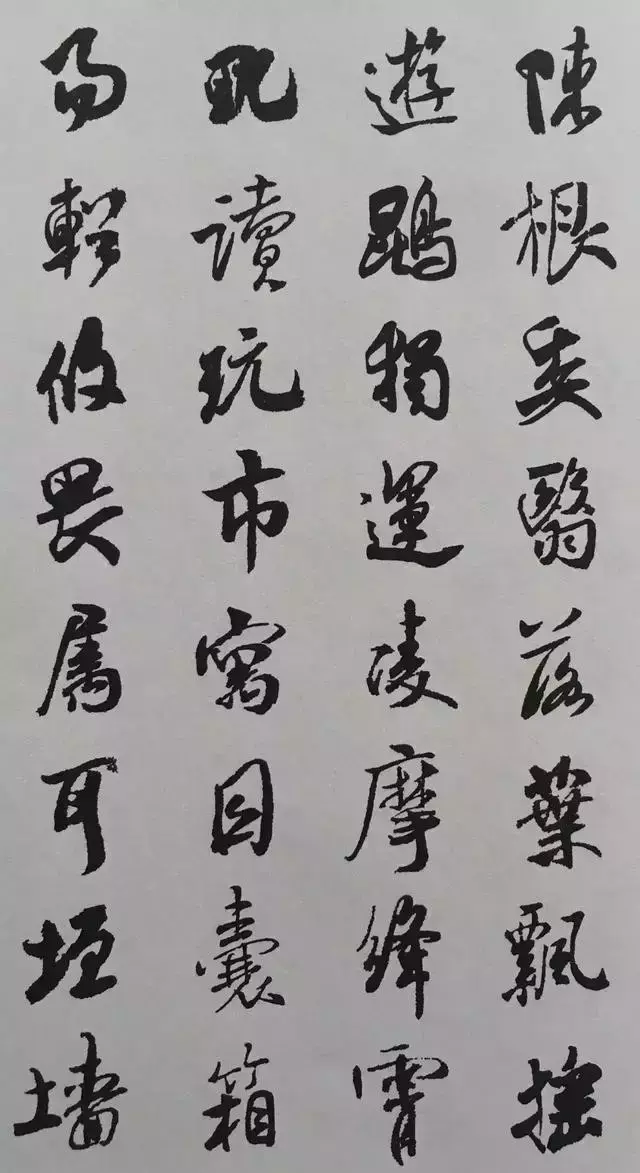 陳根委翳落葉飄搖
遊鵾獨運凌摩絳霄
耽讀玩市寓目囊箱
易輶攸畏屬耳垣墻